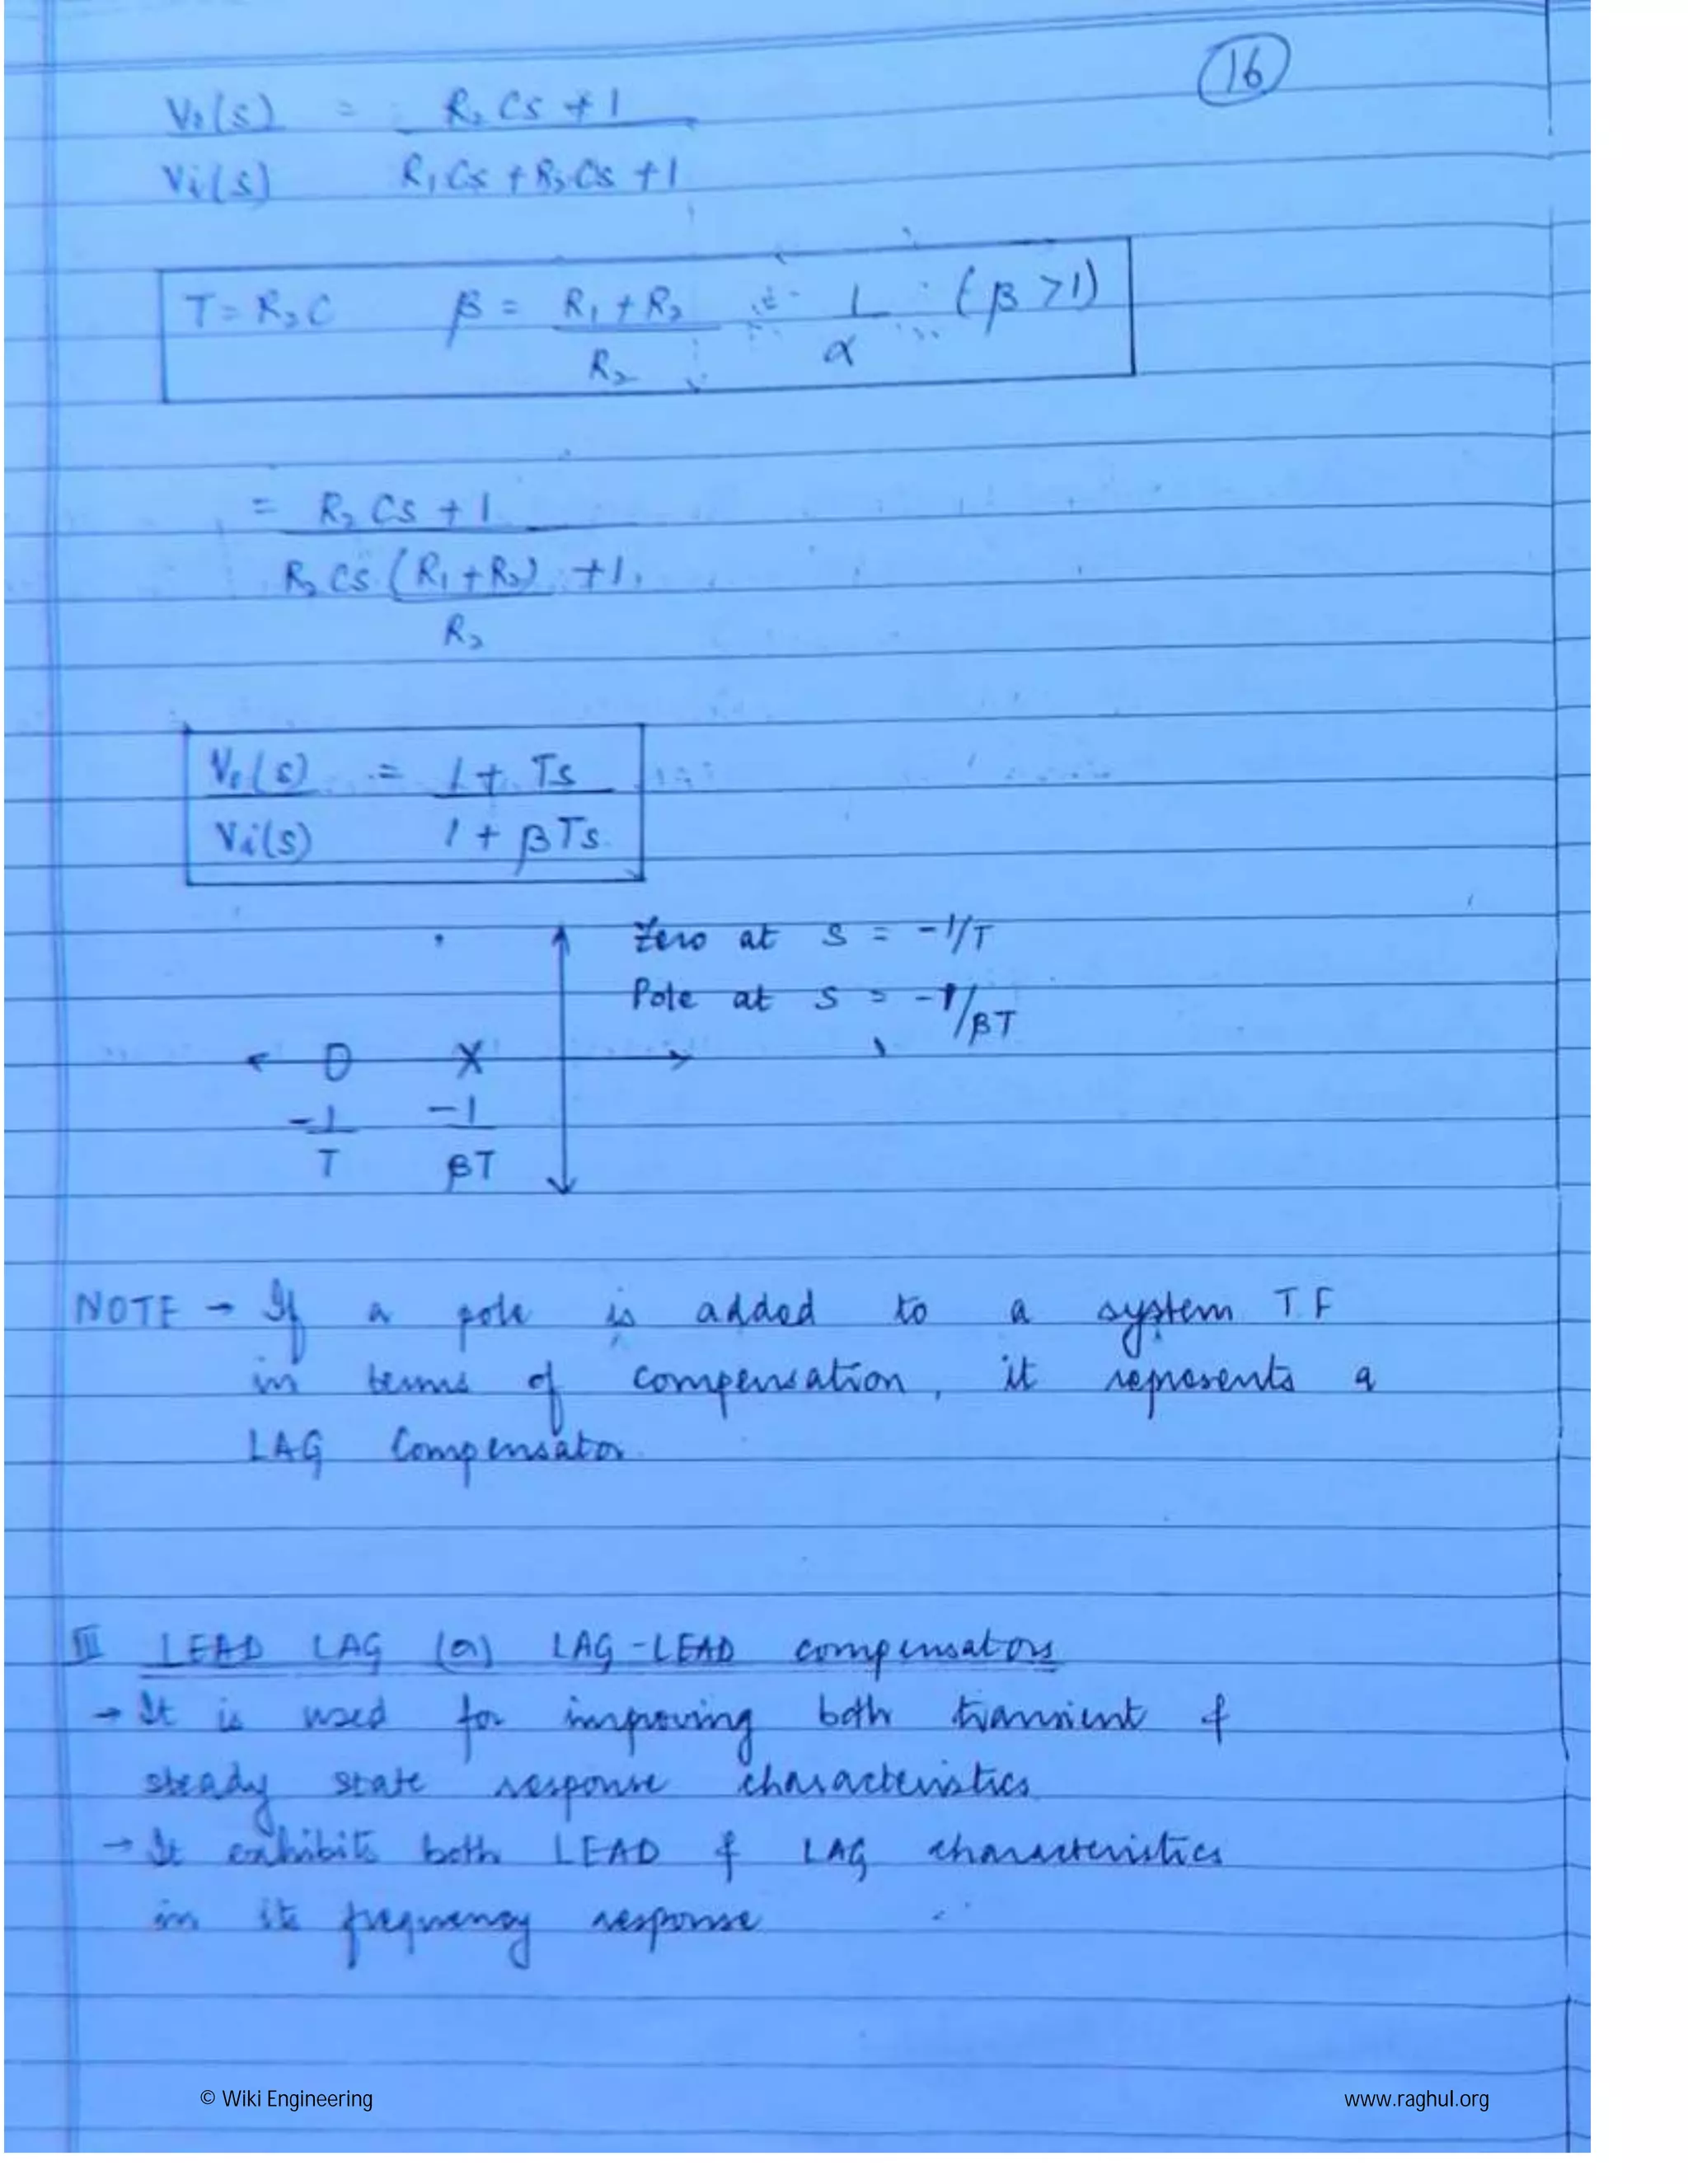 16
V₀(s) = R₂Cs + 1
Vi(s) R₁Cs + R₂Cs + 1
T = R₂C β = R₁ + R₂ = 1 (β > 1)
R₂ α
= R₂Cs + 1
R₂Cs (R₁ + R₂) + 1
R₂
V₀(s) = 1 + Ts
Vi(s) 1 + βTs
Zero at s = -1/T
Pole at s = -1/βT
-1 -1
T βT
NOTE → If a pole is added to a system T.F
in terms of compensation, it represents a
LAG Compensator
III LEAD LAG (or) LAG-LEAD compensators
→ It is used for improving both transient &
steady state response characteristics
→ It exhibits both LEAD & LAG characteristics
in its frequency response
© Wiki Engineering www.raghul.org